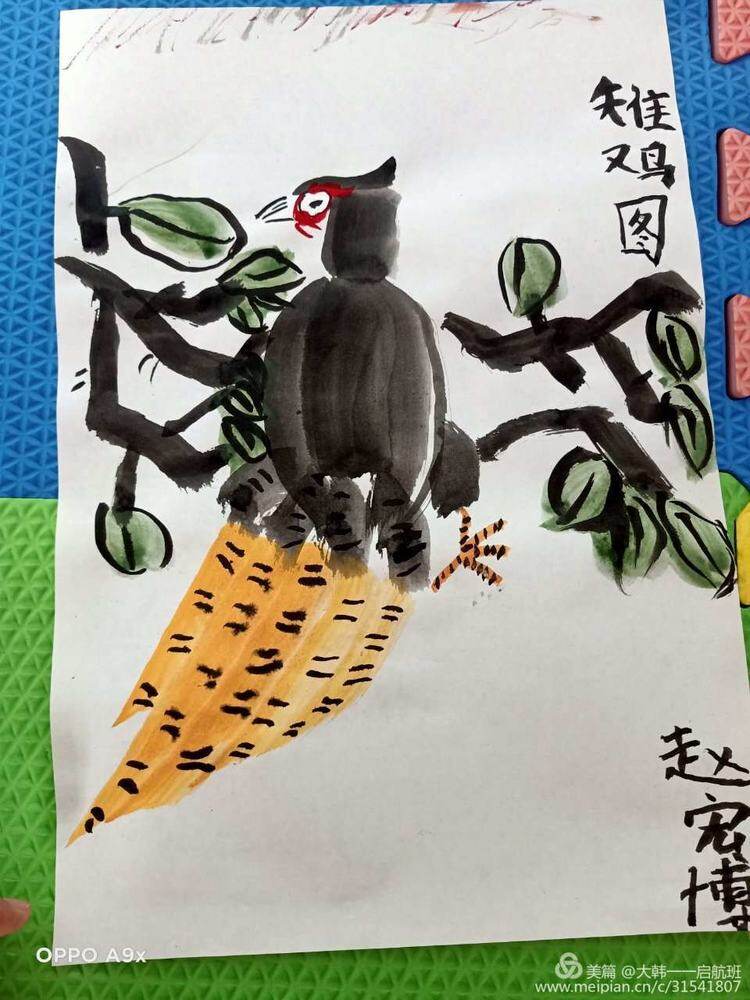 雉鸡图
赵宏博
OPPO A9x
美篇 @大韩——启航班
www.meipian.cn/c/31541807